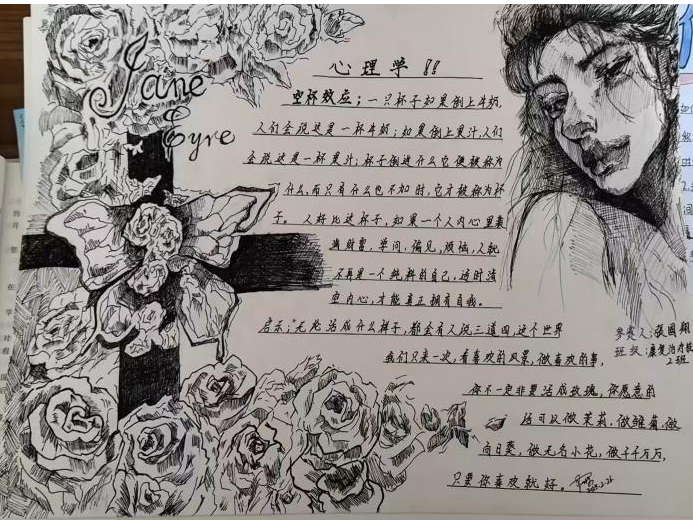 Jane
Eyre
心理学!!
空杯效应；一只杯子如果倒上牛奶，
人们会说这是一杯牛奶；如果倒上果汁，人们
会说这是一杯果汁；杯子倒进什么它便被称为
什么，而只有什么也不加时，它才被称为杯
子。人好比这杯子，如果一个人内心里装
满财富，学问，偏见，烦恼，人就
不再是一个纯粹的自己，适时清
空内心，才能真正拥有自我。
启示；"无论活成什么样子，都会有人说三道四，这个世界
我们只来一次，看喜欢的风景，做喜欢的事，
你不一定非要活成玫瑰，你愿意的
话可以做茉莉，做雏菊，做
向日葵，做无名小花，做千千万万，
只要你喜欢就好。
参赛人：張國翔
班级：康复治疗技
2班